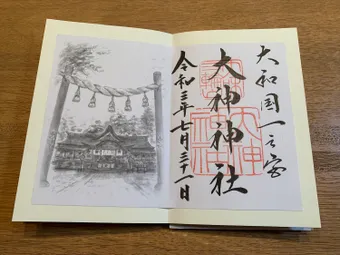 大和國一之宮
大神神社
令和三年七月三十一日